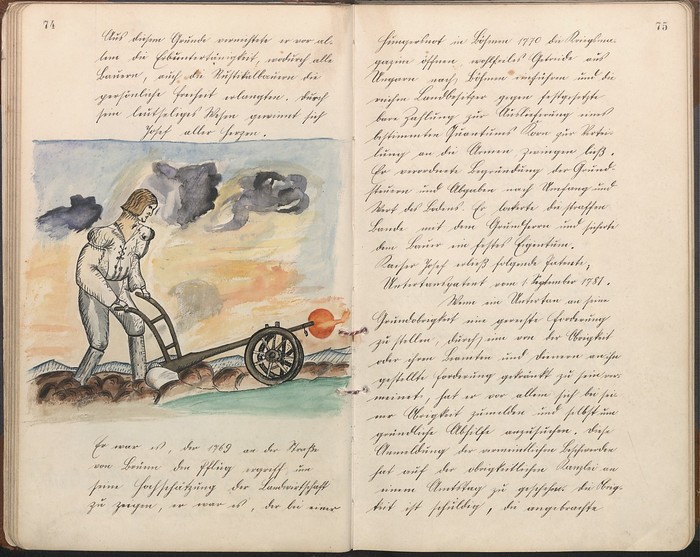 74
Aus diesem Grunde vernichtete er vor al-
lem die Erbuntertänigkeit, wodurch alle
Bauern, auch die Rustikalbauern die
persönliche Freiheit erlangten. Durch
sein leutseliges Wesen gewinnt sich
Josef aller Herzen.
Er war es, der 1769 an der Straße
von Brünn den Pflug ergriff um
seine Hochschätzung der Landwirtschaft
zu zeigen, er war es, der bei einer
75
Hungersnot in Böhmen 1770 die Kriegsma-
gazine öffnen, wohlfeiles Getreide aus
Ungarn nach Böhmen einführen und die
reichen Landbesitzer gegen festgesetzte
bare Zahlung zur Auslieferung eines
bestimmten Quantums Korn zur Vertei-
lung an die Armen zwingen ließ.
Er verordnete Begründung der Grund-
steuern und Abgaben nach Umfang und
Wert des Bodens. Er lockerte die straffen
Bande mit dem Grundherrn und sicherte
dem Bauer ein festes Eigentum.
Kaiser Josef erließ folgende Patente,
Untertanspatent vom 1. September 1781.
Wenn ein Untertan an seine
Grundobrigkeit eine gerechte Forderung
zu stellen, durch eine von der Obrigkeit
oder ihren Beamten und Dienern an ihn
gestellte Forderung gekränkt zu sein ver-
meinet, hat er vor allem sich bei sei-
ner Obrigkeit zu melden und selbst um
gründliche Abhilfe anzusuchen. Diese
Anmeldung der vermeintlichen Beschwerden
hat auf der obrigkeitlichen Kanzlei an
einem Amtstag zu geschehen, die Obrig-
keit ist schuldig, die angebrachte